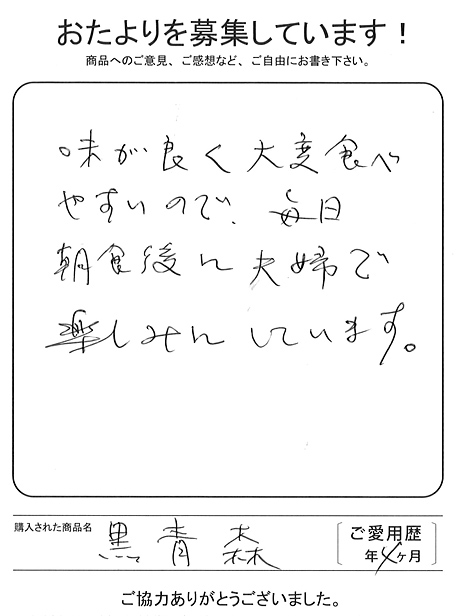 おたよりを募集しています！
商品へのご意見、ご感想など、ご自由にお書き下さい。
味が良く大変食べ
やすいので、毎日
朝食後に夫婦で
楽しみにしています。
購入された商品名 黒青森
ご愛用歴
年4ヶ月
ご協力ありがとうございました。